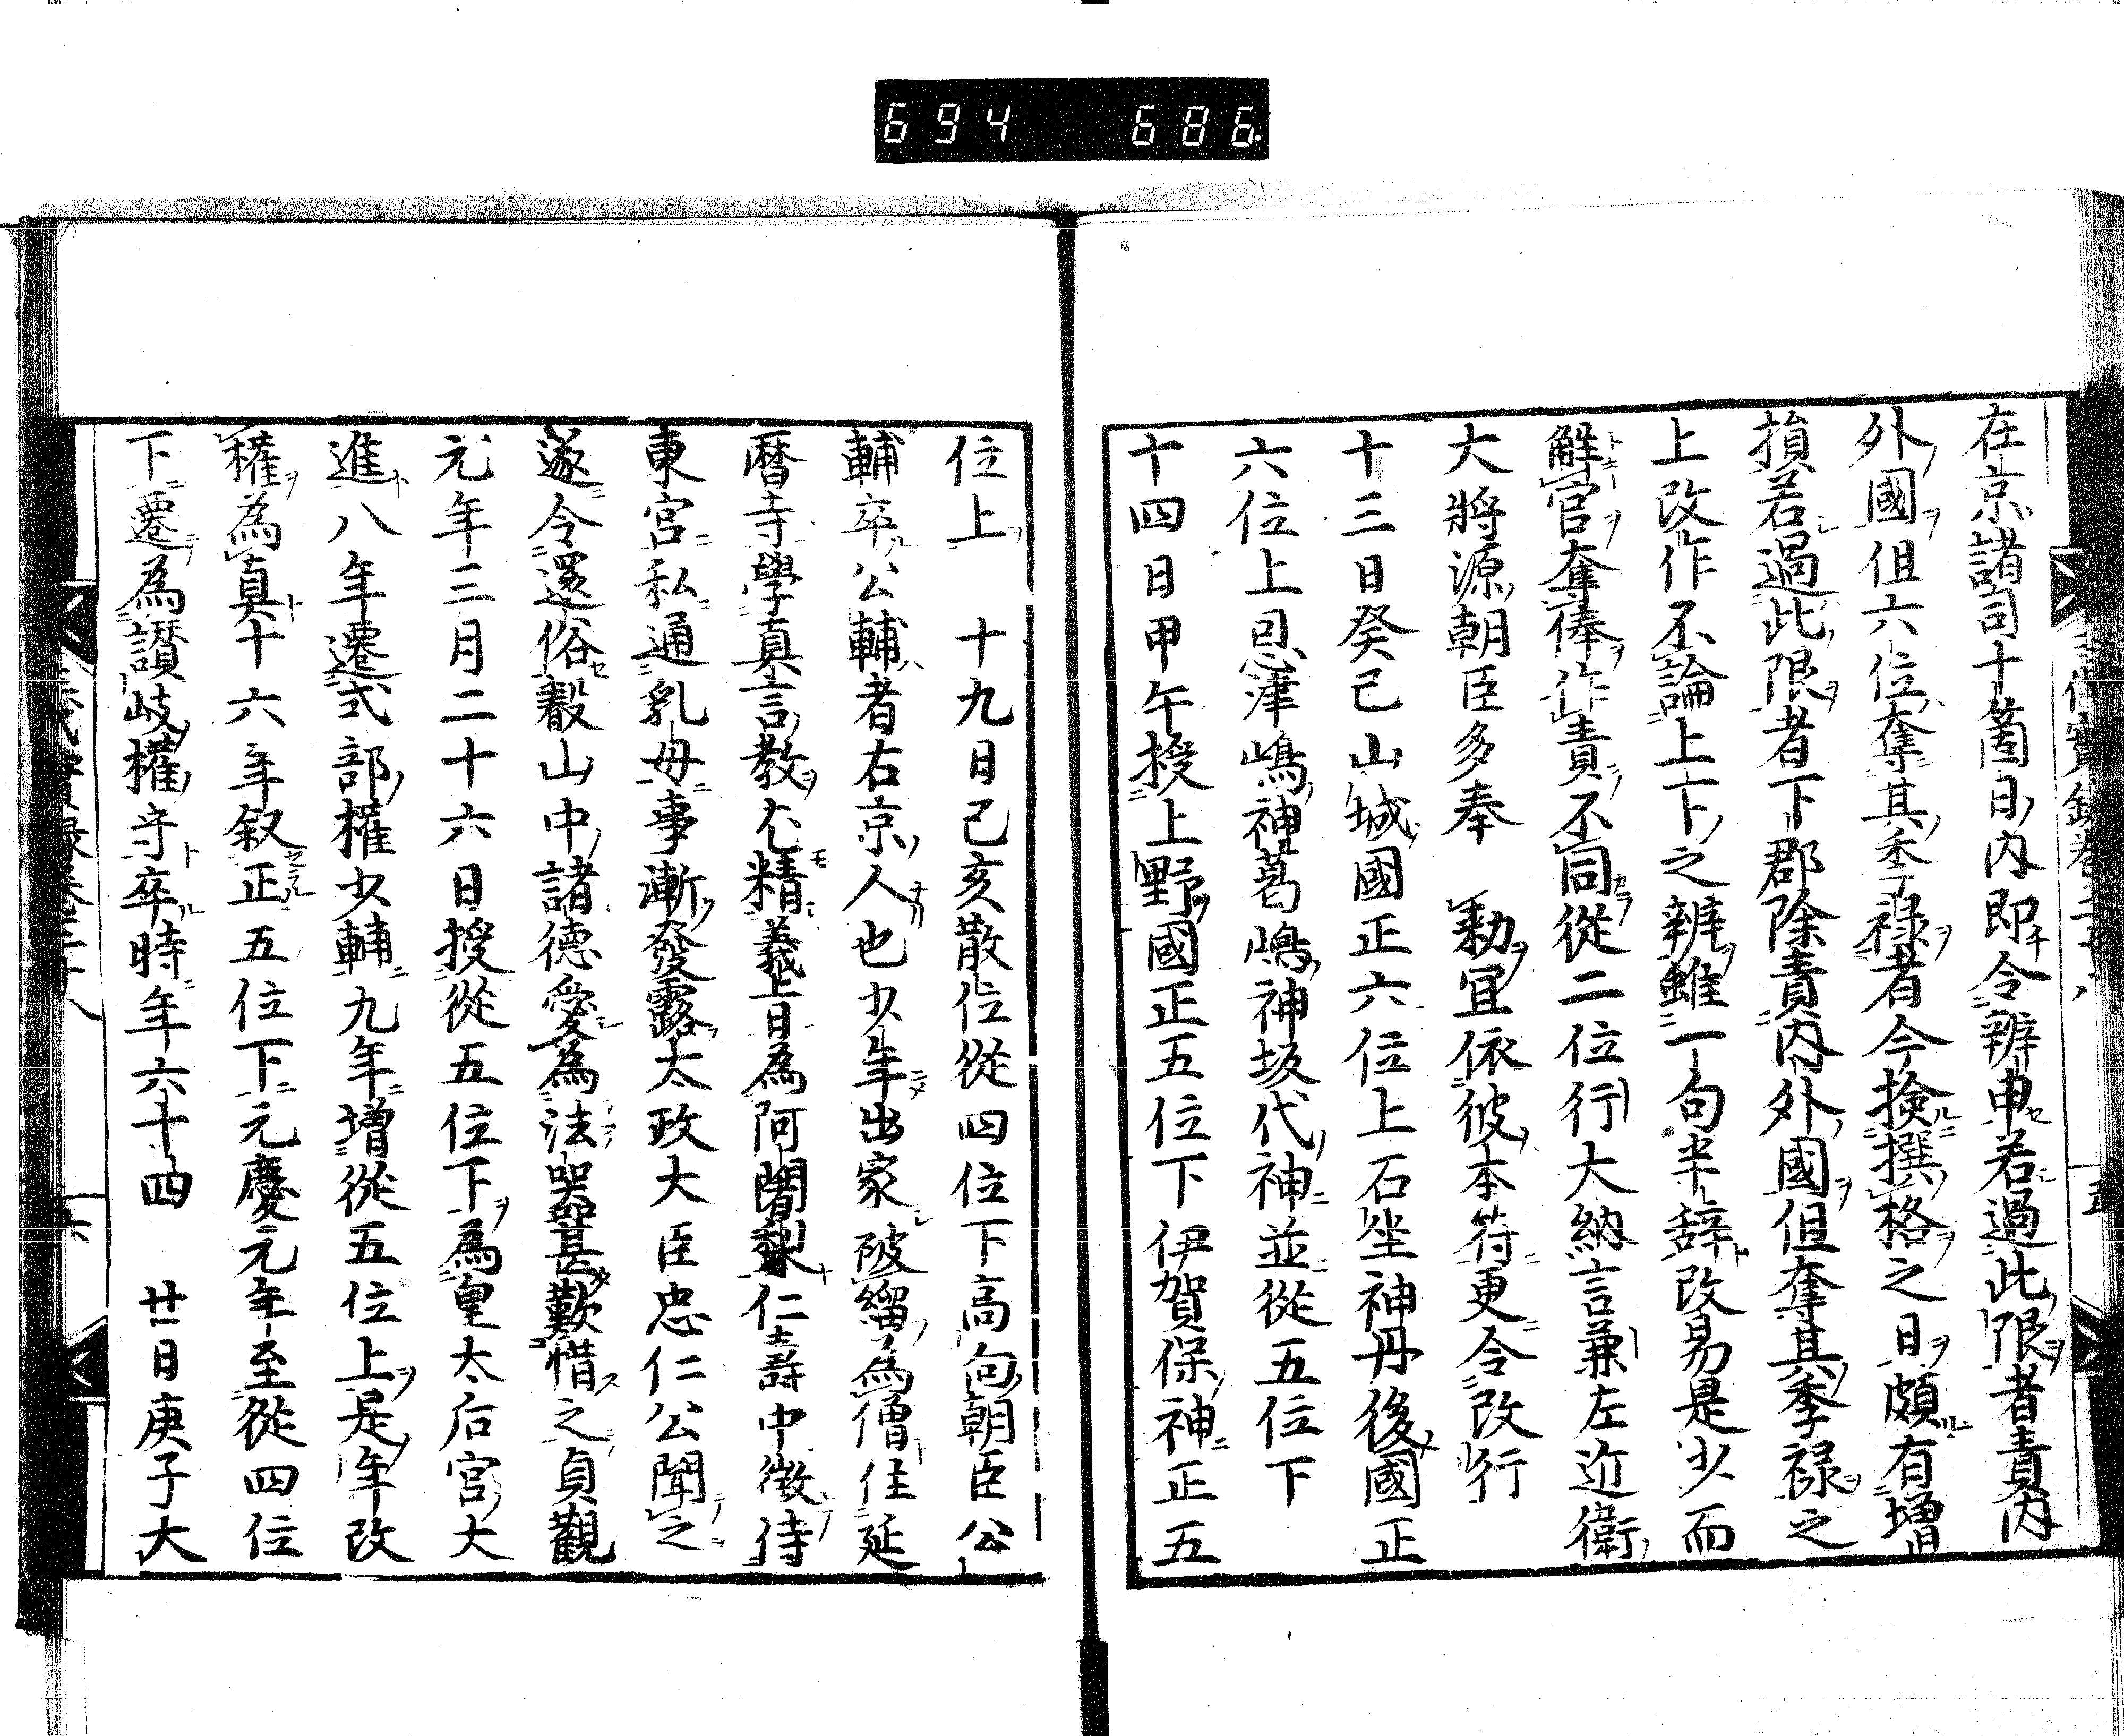 694 686.
在京諸司十箇日内即令辨申若過此限者責内
外國但六位奪其季禄者今撿撰格之日頗有増
損若過此限者下郡除責内外國但奪其季禄之
上改作不論上下之辨雖一句半辞改易是少而
解官奪俸作責不同從二位行大納言兼左近衛
大將源朝臣多奉　勅宜依彼本符更令改行
十三日癸己山城國正六位上石坐神丹後國正
六位上恩津嶋神葛嶋神坂代神並從五位下
十四日甲午授上野國正五位下伊賀保神正五
位上　十九日己亥散位從四位下高向朝臣公
輔卒公輔者右京人也少年出家陂緇為僧住延
暦寺學真言教尤精義上日為阿闍梨仁壽中徴侍
東宮私通乳母事漸發露太政大臣忠仁公聞之
遂令還俗叡山中諸德愛為法器甚歎惜之貞觀
元年三月二十六日授從五位下為皇太后宮大
進八年遷式部權少輔九年増從五位上是年改
權為真十六年叙正五位下元慶元年至從四位
下遷為讃岐權守卒時年六十四　廿日庚子大